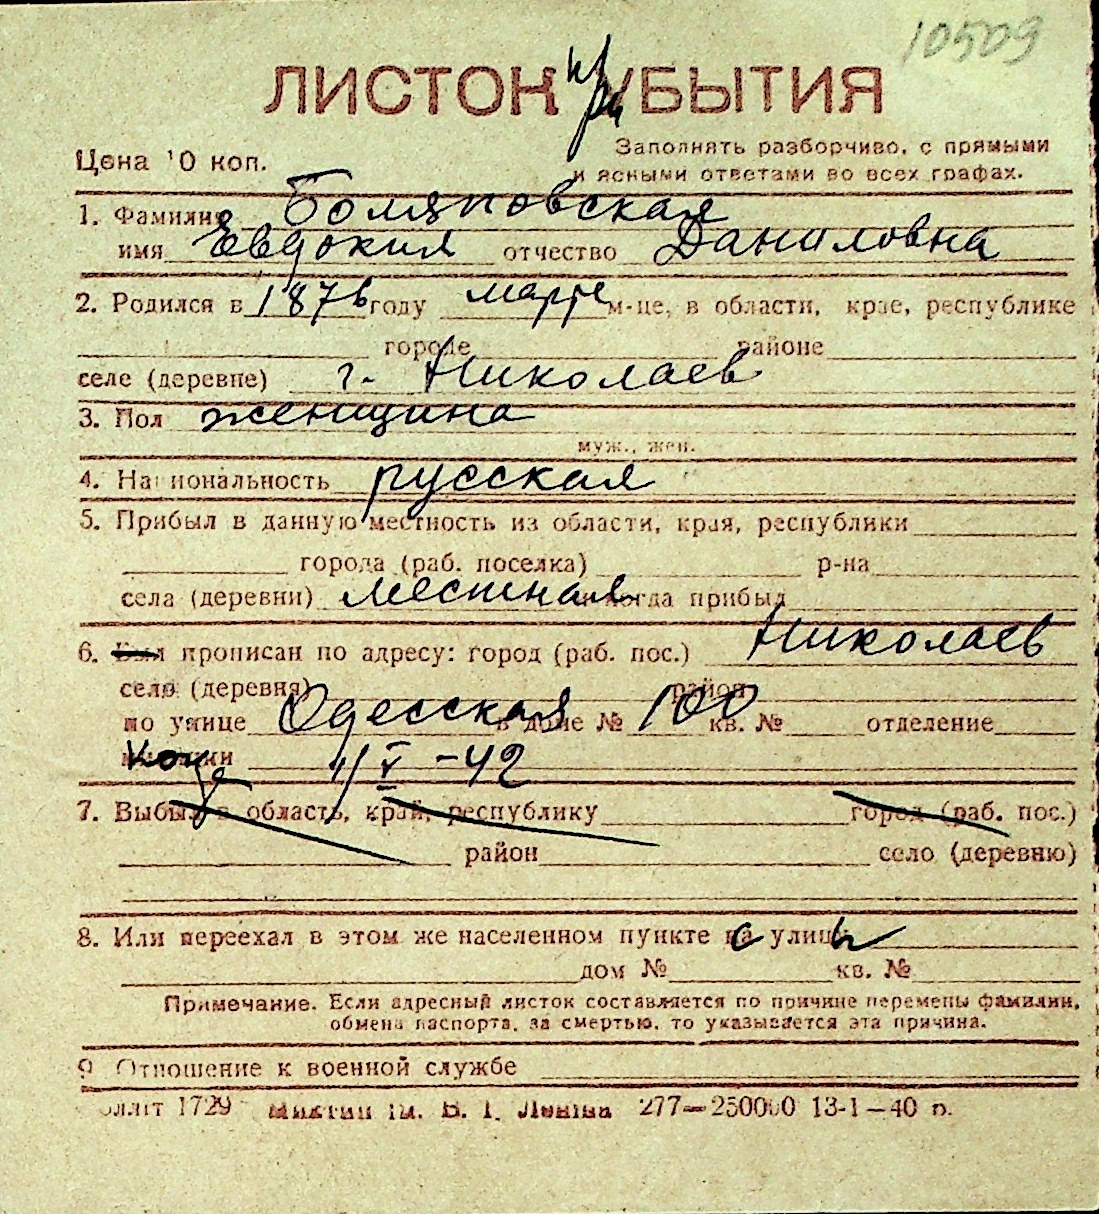 10509
ЛИСТОК УБЫТИЯ
Цена 10 коп.
Заполнять разборчиво, с прямыми
и ясными ответами во всех графах.
1. Фамилия
имя Евдокия отчество Даниловна
2. Родился в 1876 году марте м-це, в области, крае, республике
городе районе
селе (деревне) г. Николаев
3. Пол женщина
муж., жен.
4. Национальность русская
5. Прибыл в данную местность из области, края, республики
города (раб. поселка) р-на
села (деревни) местная и когда прибыл
6. Был прописан по адресу: город (раб. пос.) Николаев
село (деревня) район
по улице Одесская в доме № 100 кв. № отделение
милиции 1/V-42
7. Выбыл в область, край, республику город (раб. пос.)
район село (деревню)
8. Или переехал в этом же населенном пункте с улицы
дом № кв. №
Примечание. Если адресный листок составляется по причине перемены фамилии,
обмена паспорта, за смертью, то указывается эта причина.
9 Отношение к военной службе
1729 ім. В. І. Леніна 277—250000 13-1—40 р.